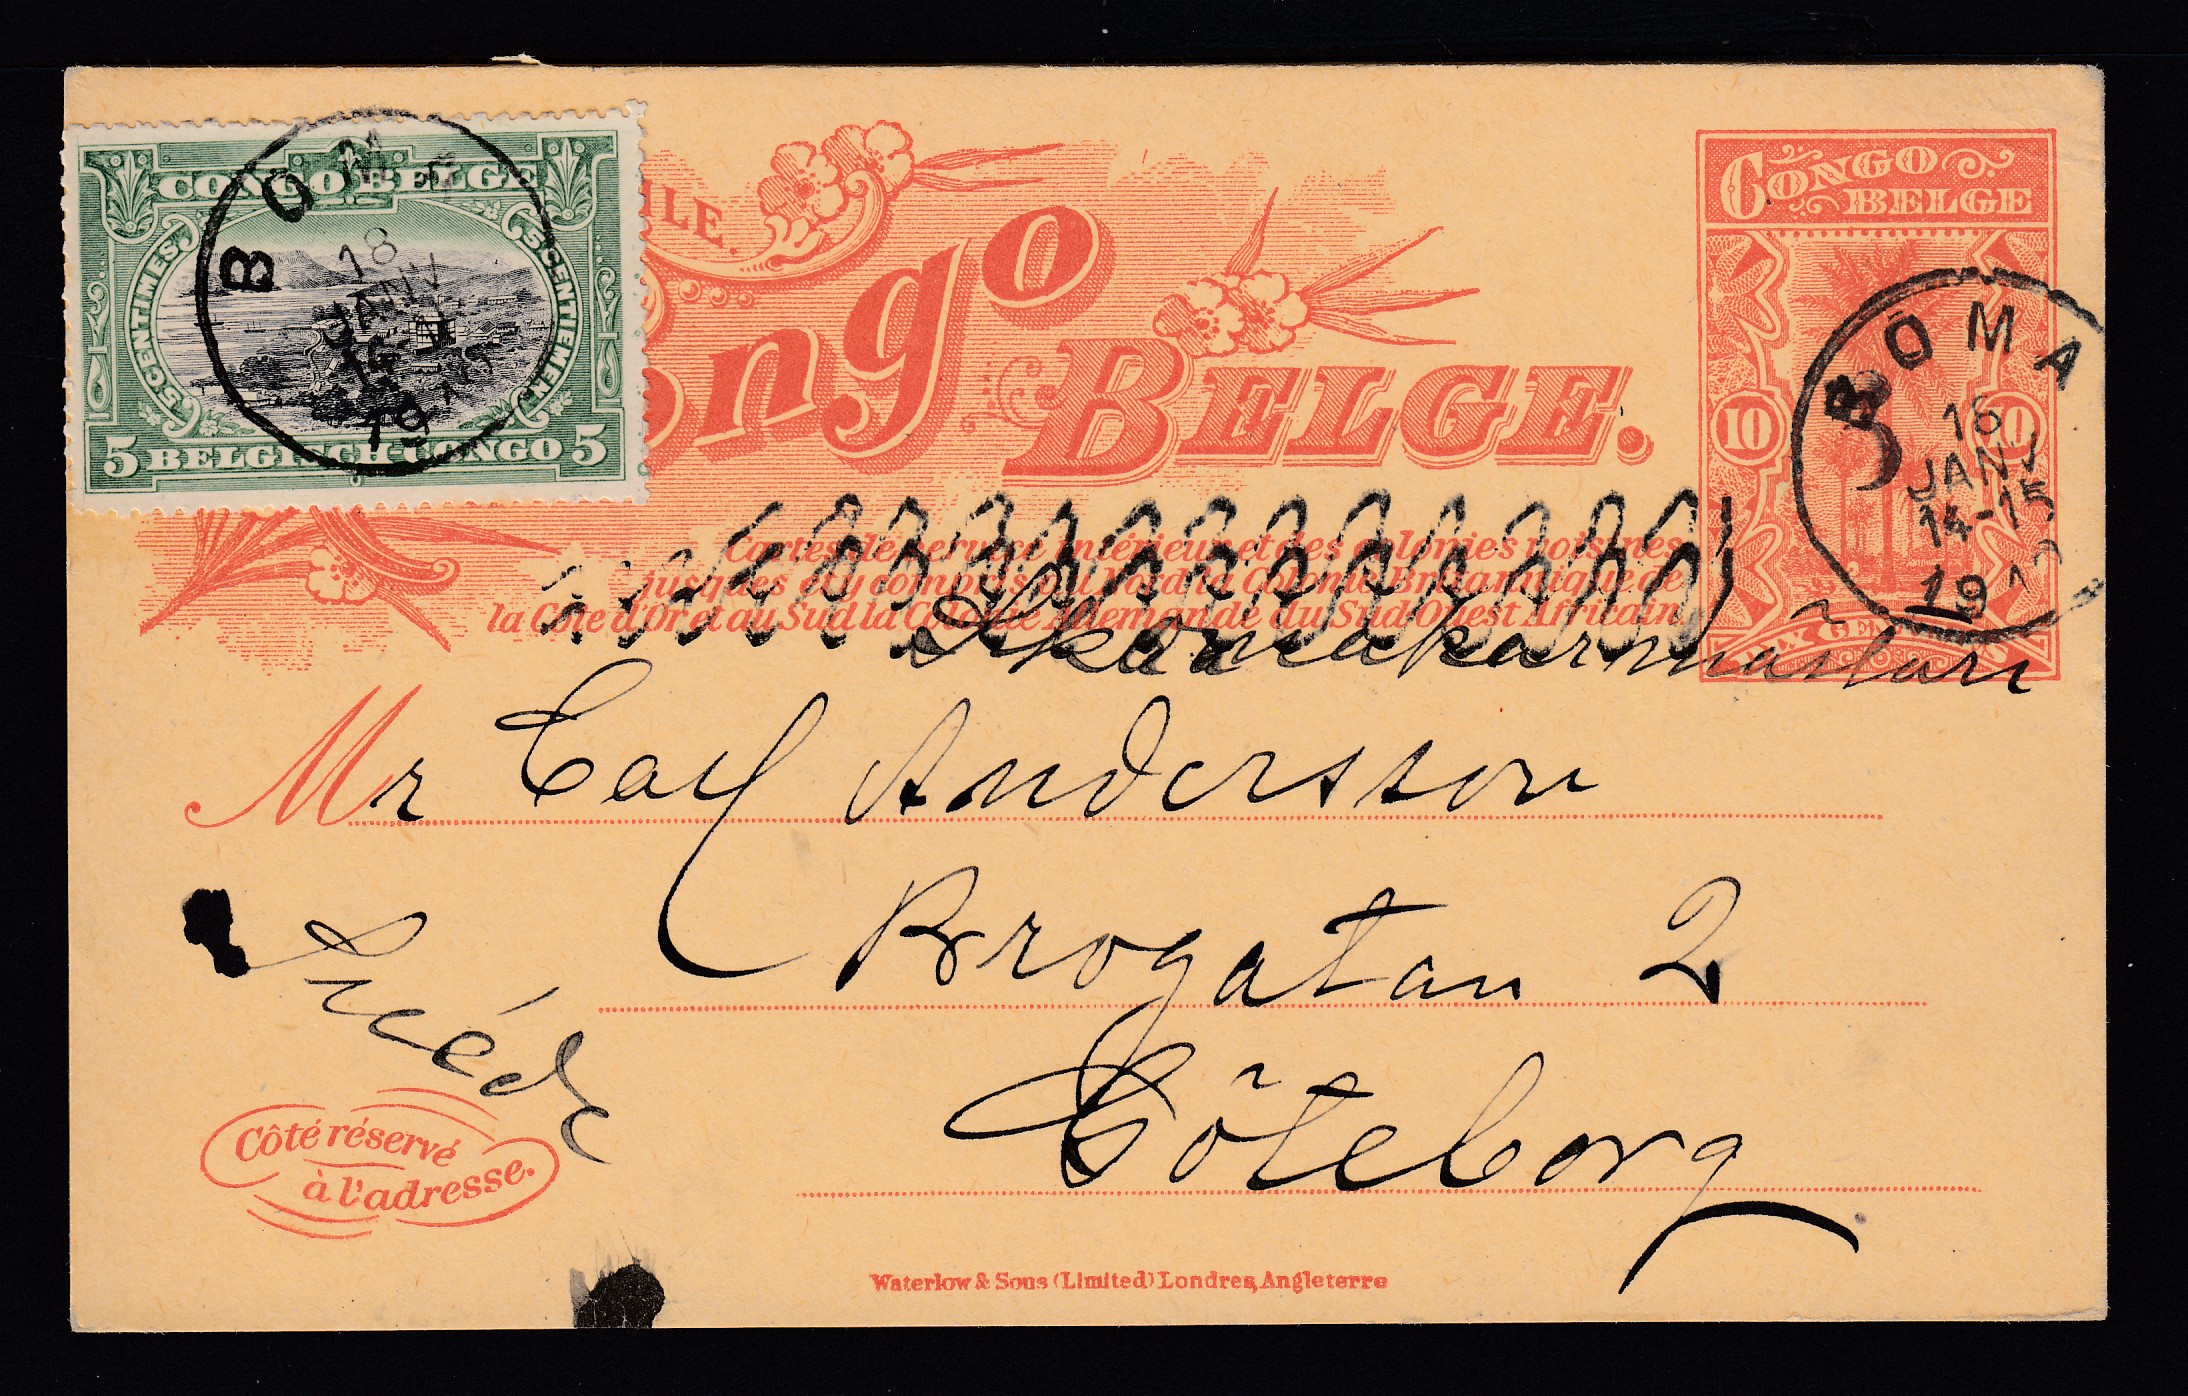 CONGO BELGE
5 CENTIMES
5 CENTIEMEN
5 BELGISCH-CONGO 5
BOMA
18
JANV
19
ILE.
ongo
BELGE.
CONGO
BELGE
10
BOMA
16
JANV
14-15
19
Cartes de service intérieur et des colonies voisines
jusques et y compris au Nord la Colonie Britannique de
la Côte d'Or et au Sud la Colonie Allemande du Sud Ouest Africain
Skomakarmästari
Mr Carl Andersson
Brogatan 2
Göteborg
Suéde
Côté réservé
à l'adresse.
Waterlow & Sons (Limited) Londres, Angleterre